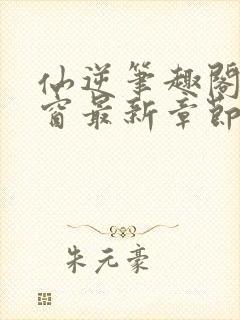 仙逆笔趣阁
窗最新章节
朱元豪